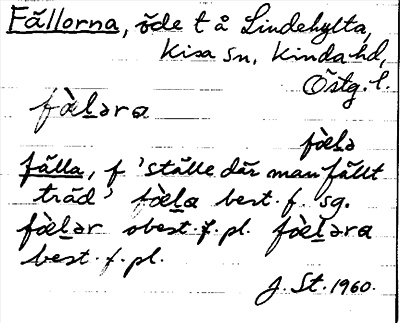 Fällorna, öde t å Lindehylta,
Kisa sn, Kinda hd,
Östg. l.
fὰl̲əra
fὰl̲ə
fälla, f 'ställe där man fällt
träd' fὰl̲a best. f. sg.
fὰl̲ər obest. f. pl. fὰl̲əra
best. f. pl.
J. St. 1960.